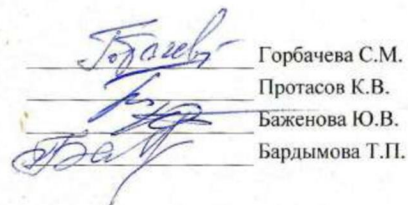 Горбачева С.М.
Протасов К.В.
Баженова Ю.В.
Бардымова Т.П.